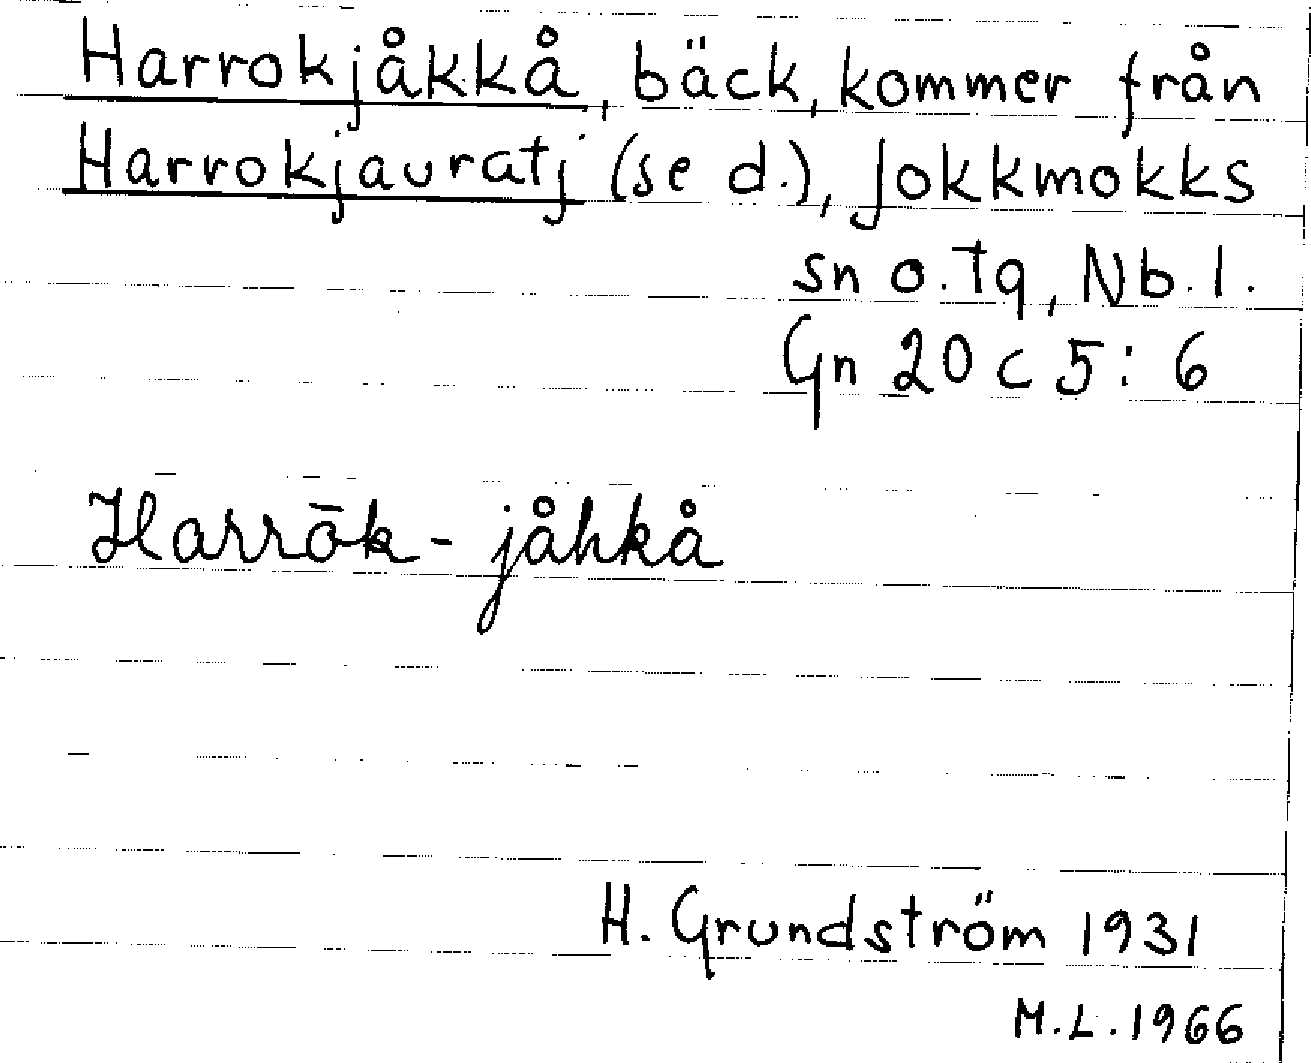 Harrokjåkkå, bäck, kommer från
Harrokjauratj (se d.), Jokkmokks
sn o. tg, Nb. l.
Gn 20 c 5 : 6
Harrōk - jåhkå
H. Grundström 1931
M.L. 1966